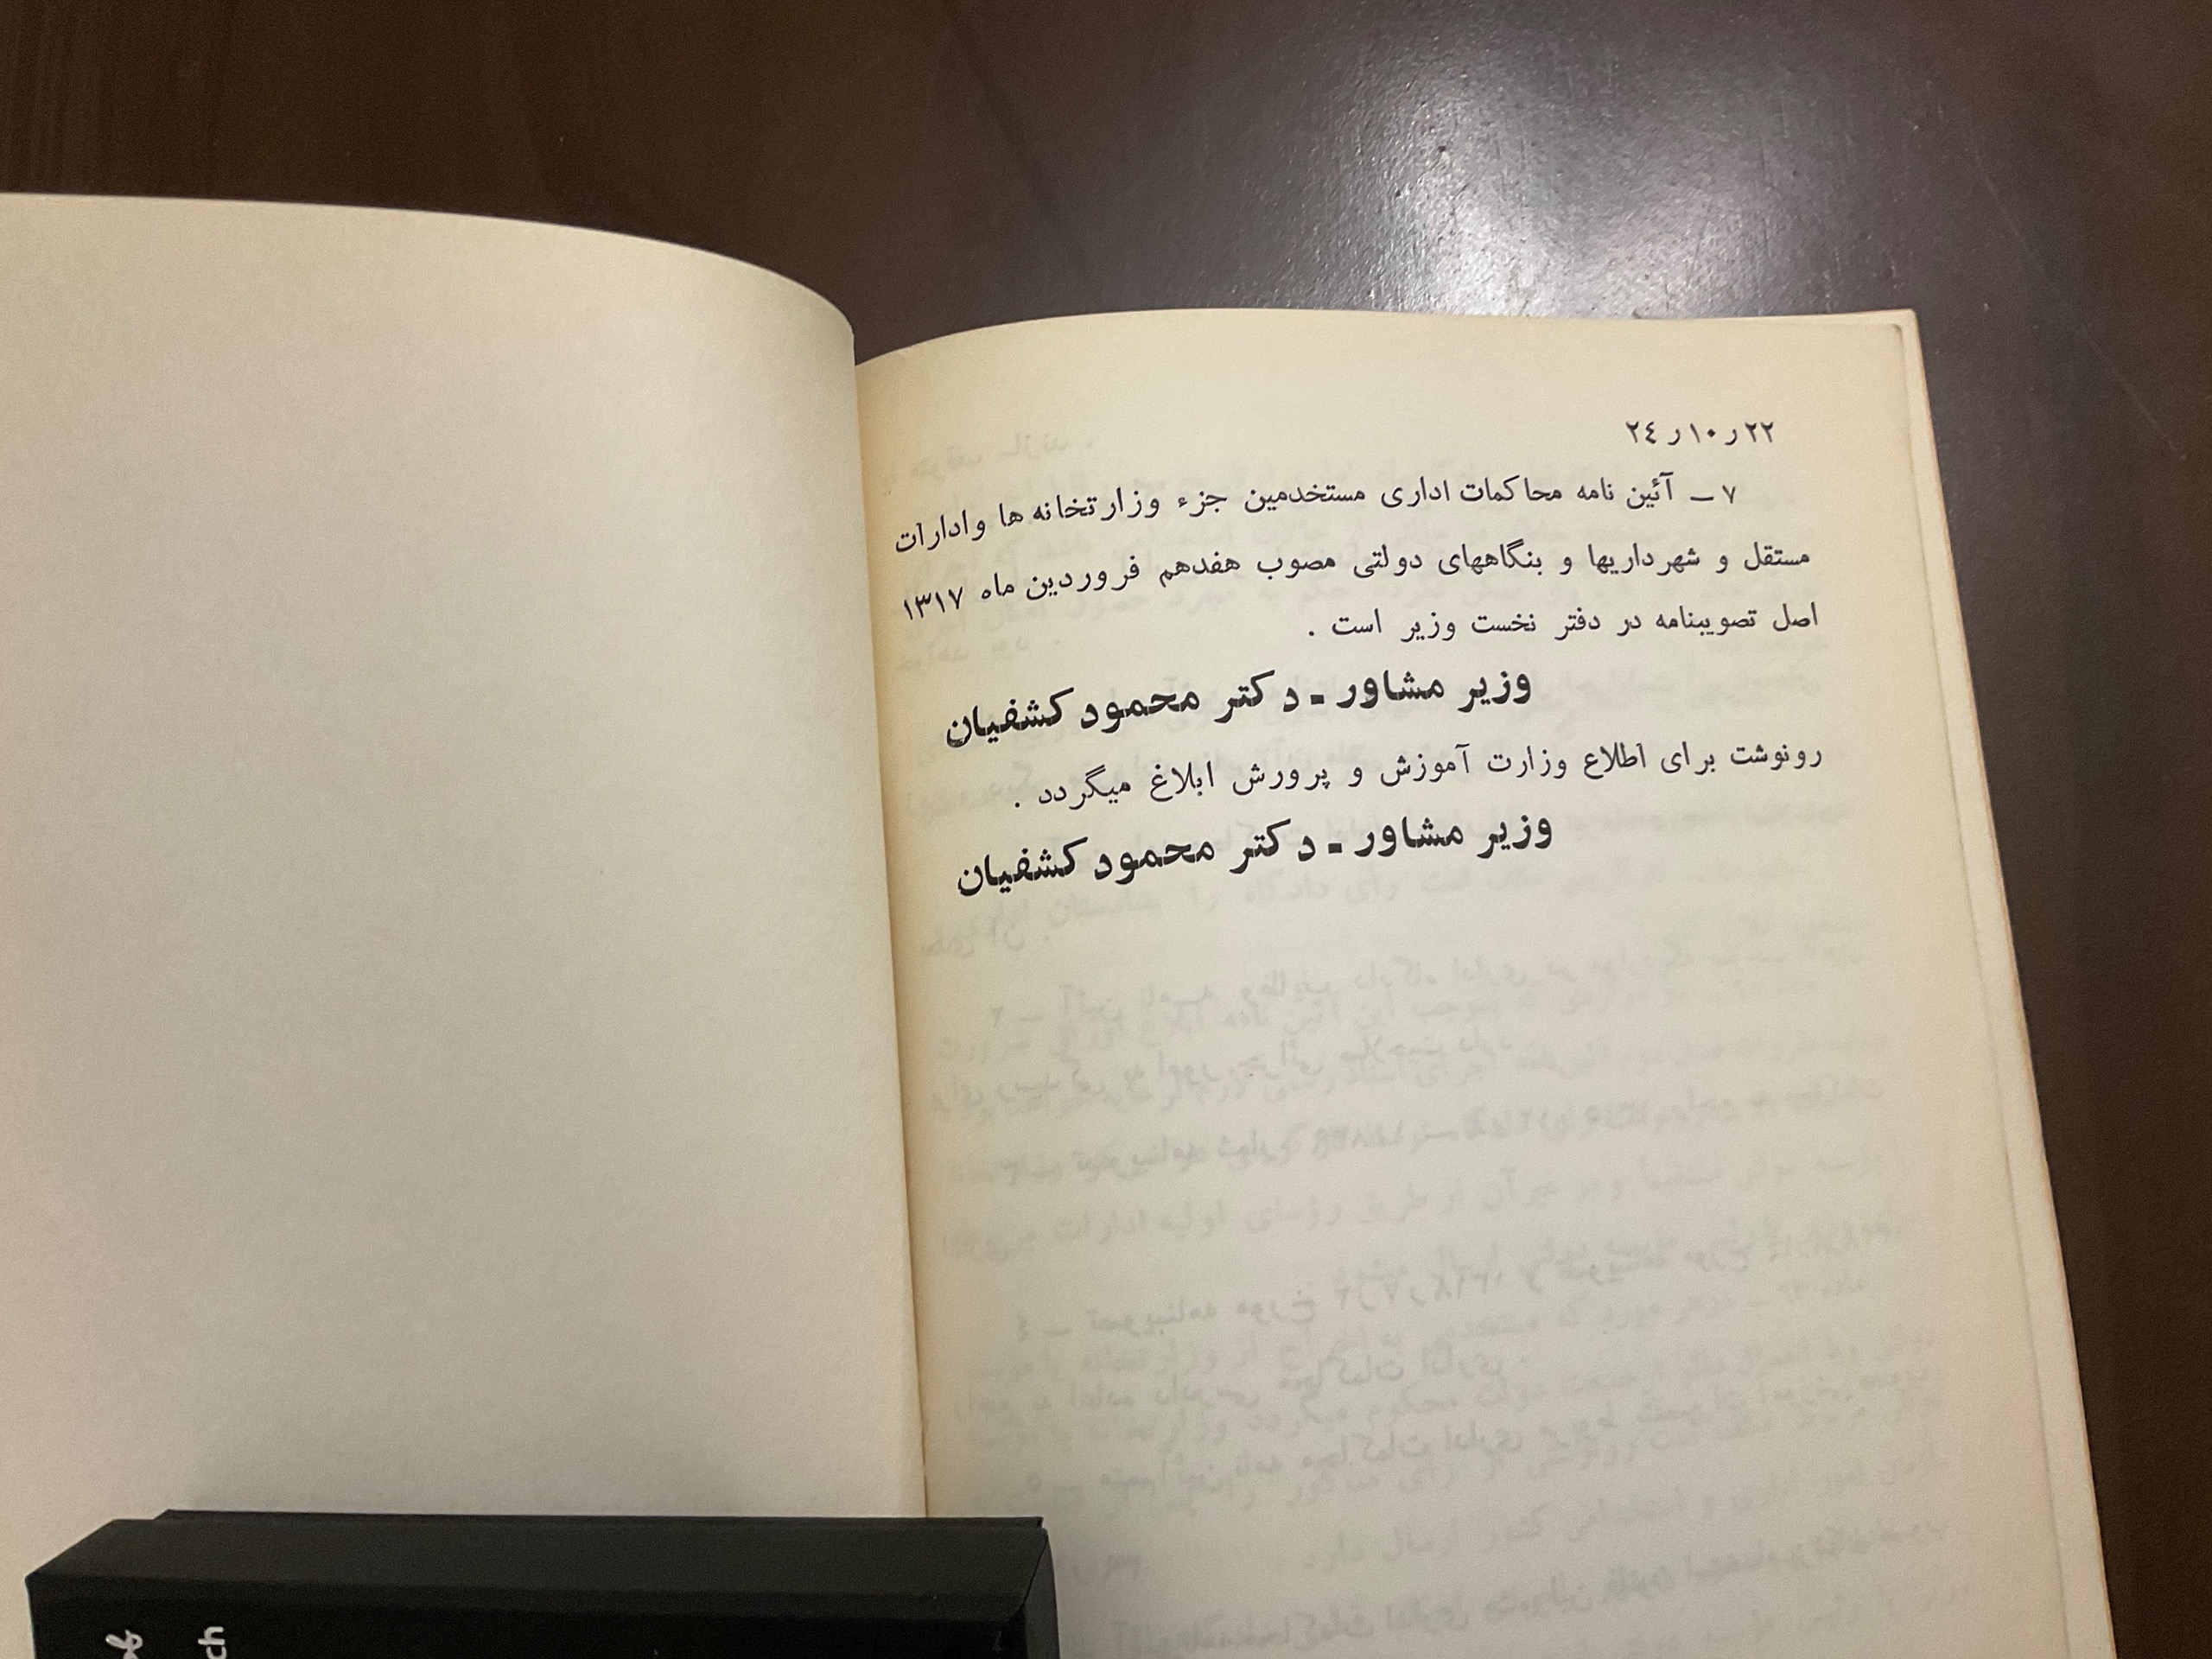 ۲۲ر۱۰ر۲٤
۷ – آئین نامه محاکمات اداری مستخدمین جزء وزارتخانه ها و ادارات
مستقل و شهرداریها و بنگاههای دولتی مصوب هفدهم فروردین ماه ۱۳۱۷
اصل تصویبنامه در دفتر نخست وزیر است .
وزیر مشاور - دکتر محمود کشفیان
رونوشت برای اطلاع وزارت آموزش و پرورش ابلاغ میگردد .
وزیر مشاور - دکتر محمود کشفیان
ch